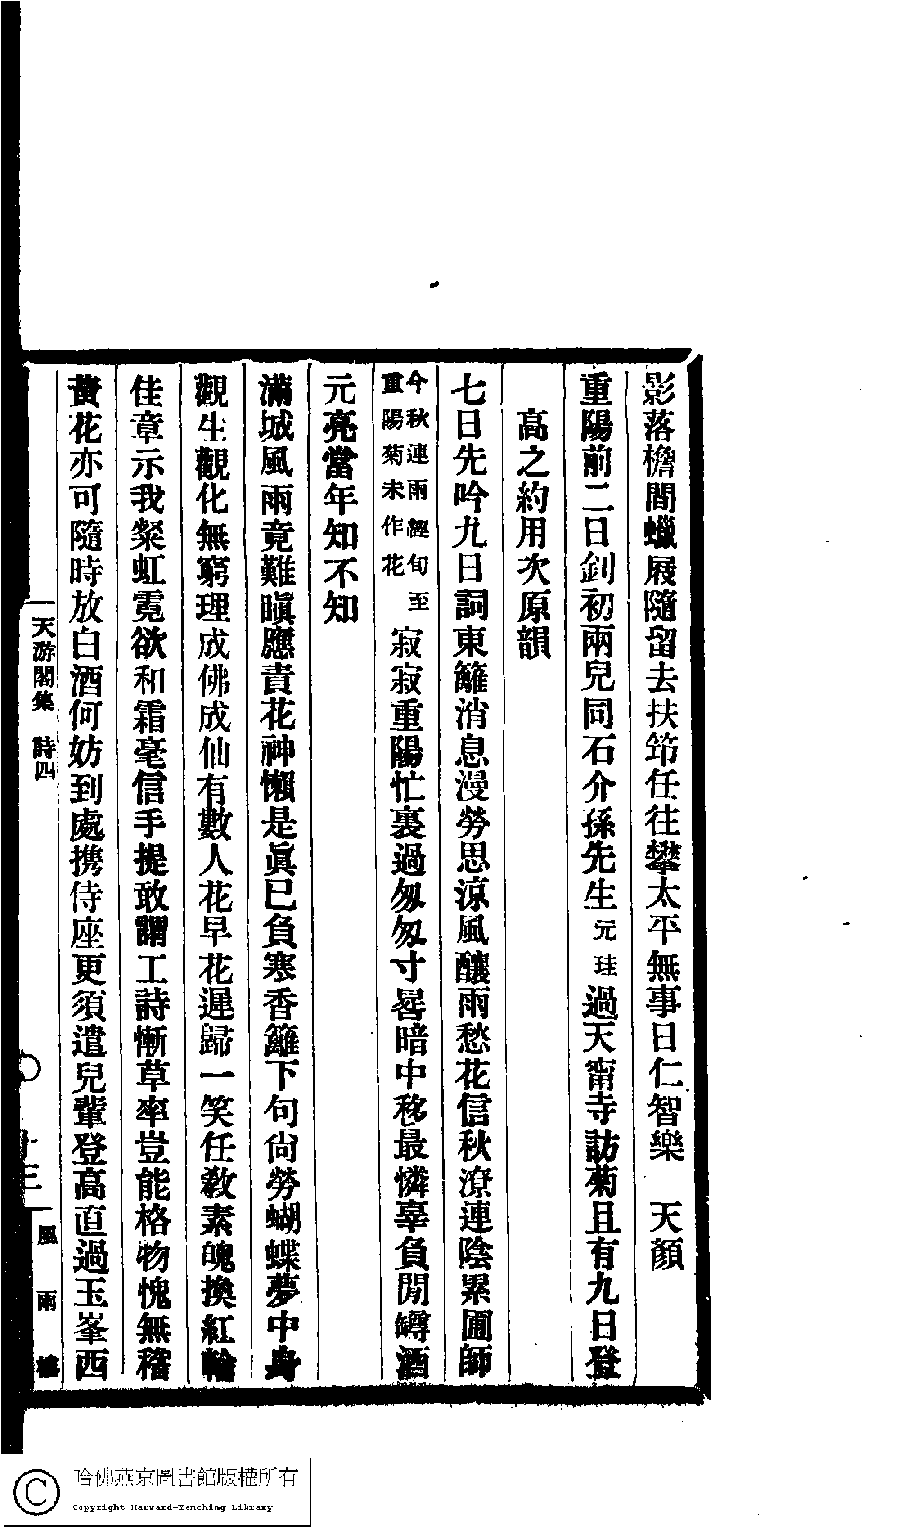 影落檐間蠟屐隨留去扶筇任往攀太平無事日仁智樂　天顏
重陽前二日釗初兩兒同石介孫先生元珪過天甯寺訪菊且有九日登
高之約用次原韻
七日先吟九日詞東籬消息漫勞思涼風釀雨愁花信秋潦連陰累圃師
今秋連雨經旬至
重陽菊未作花
寂寂重陽忙裏過匆匆寸晷暗中移最憐辜負閒罇酒
元亮當年知不知
滿城風雨竟難瞋應責花神懶是眞已負寒香籬下句尙勞蝴蝶夢中身
觀生觀化無窮理成佛成仙有數人花早花遲歸一笑任敎素魄換紅輪
佳章示我粲虹霓欲和霜毫信手提敢謂工詩慚草率豈能格物愧無稽
黃花亦可隨時放白酒何妨到處携侍座更須遣兒輩登高直過玉峯西
天游閣集　詩四
風雨樓
哈佛燕京圖書館版權所有
Copyright Harvard-Yenching Library